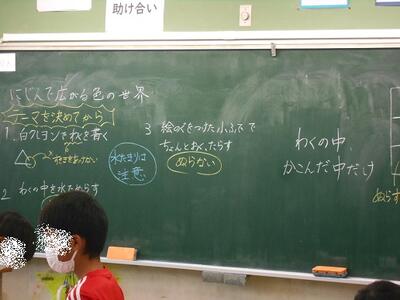 助け合い
にじんで広がる色の世界
テーマを決めてから
1. 白クレヨンでわくを書く
すきまをあけない
2 わくの中を水でぬらす
水たまりは
注意
3 絵のぐをつけた小ふでで
ちょんとおく、たらす
ぬらない
わくの中、
かこんだ中だけ
ぬらす